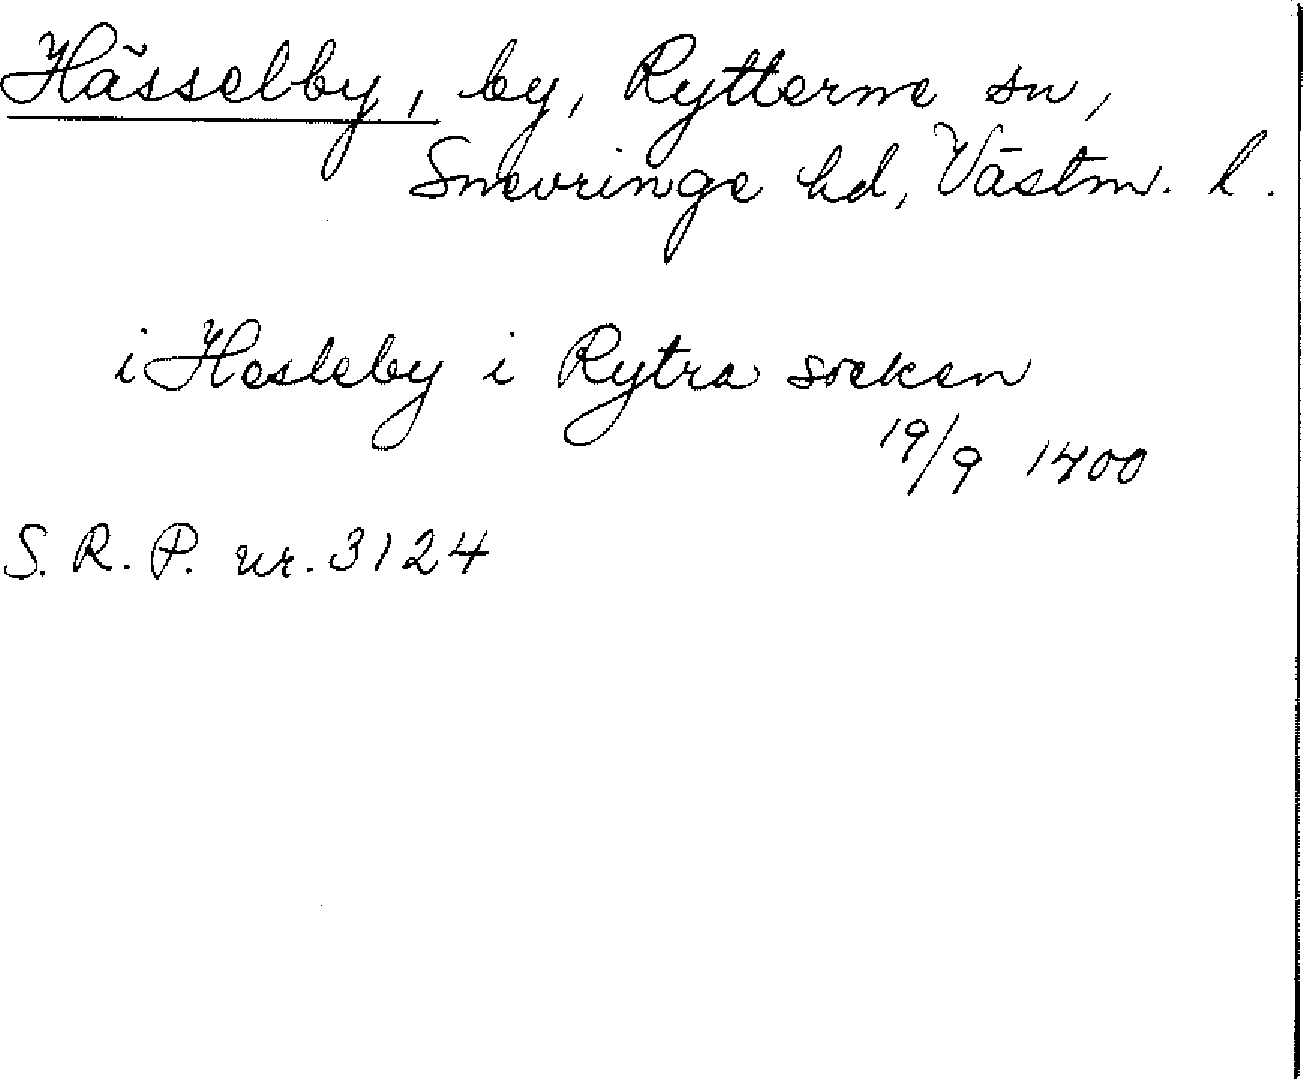 Hässelby, by, Rytterne sn,
Snevringe hd, Västm. l.
i Hesleby i Rytra socken
19/9 1400
S. R. P. nr. 3124